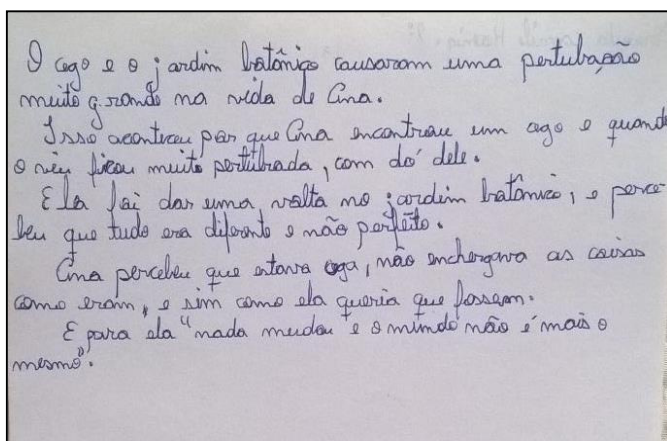 O cego e o jardim botânico causaram uma pertubação
muito grande na vida de Ana.
Isso aconteceu por que Ana encontrou um cego e quando
o viu ficou muito pertubada, com dó dele.
Ela foi dar uma volta no jardim botânico, e perce-
beu que tudo era diferente e não perfeito.
Ana percebeu que estava cega, não enchergava as coisas
como eram, e sim como ela queria que fossem.
E para ela "nada mudou e o mundo não é mais o
mesmo".